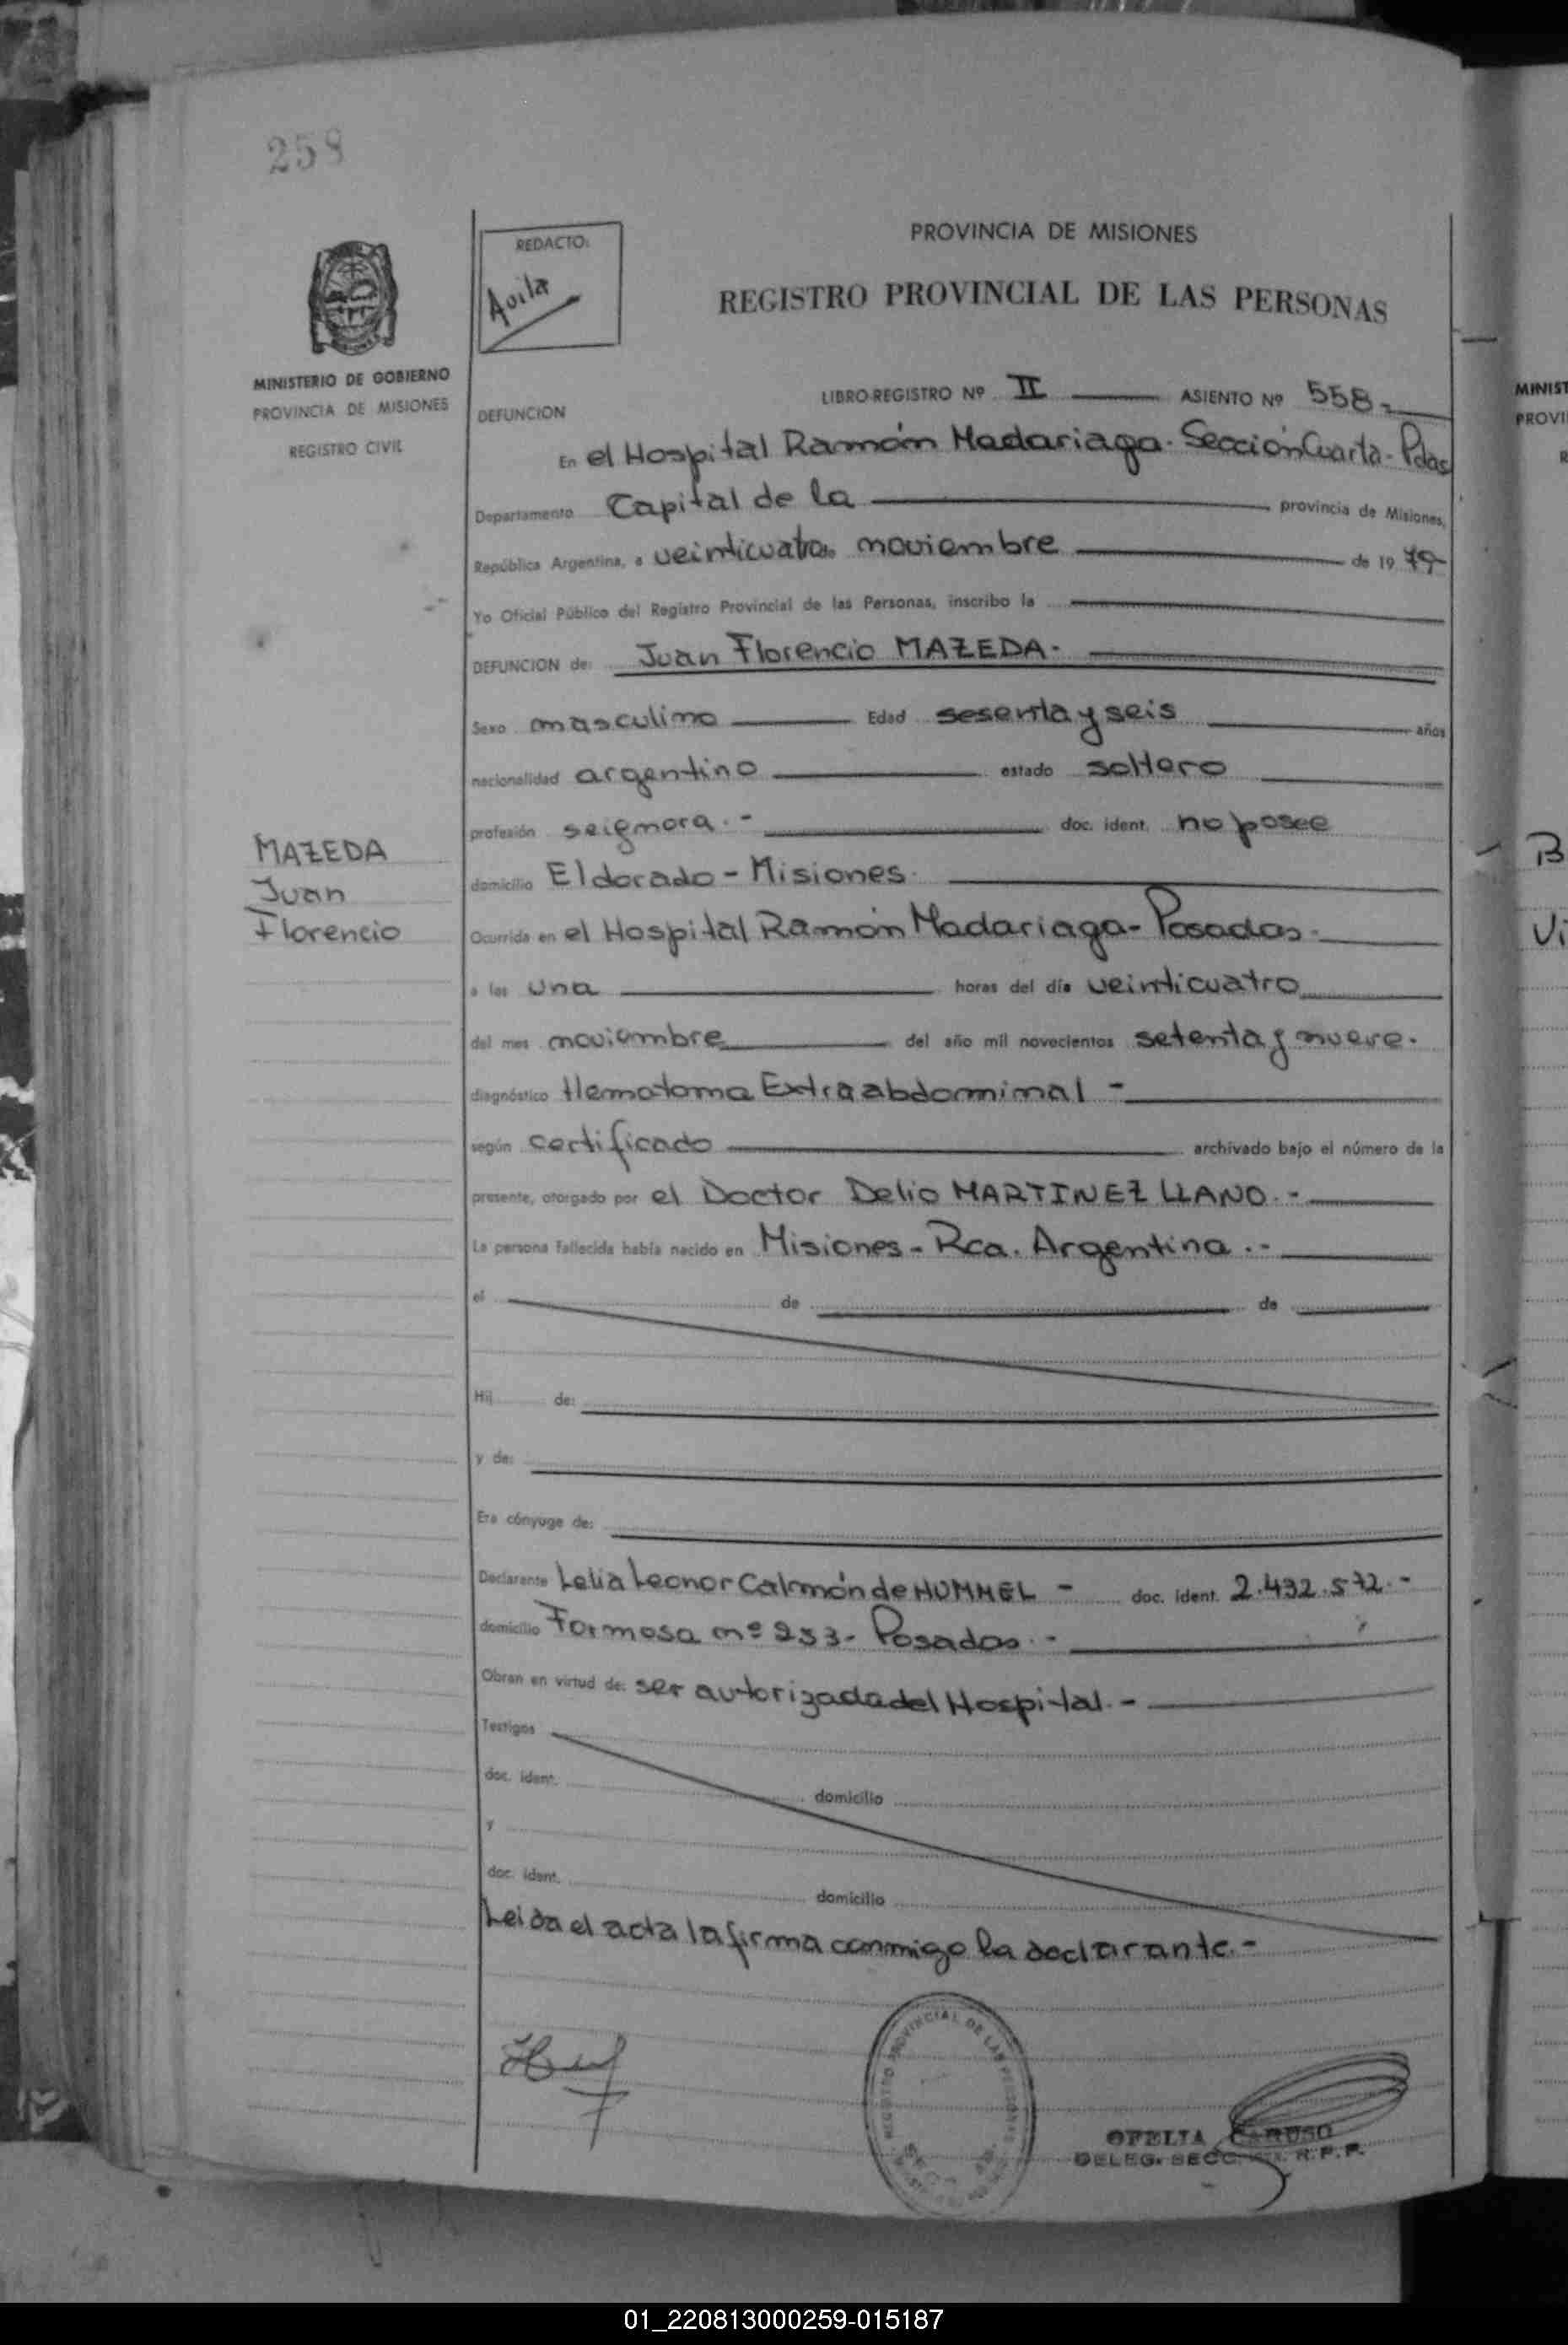 258
REDACTO:
Avila
MINISTERIO DE GOBIERNO
PROVINCIA DE MISIONES
REGISTRO CIVIL
PROVINCIA DE MISIONES
REGISTRO PROVINCIAL DE LAS PERSONAS
LIBRO-REGISTRO Nº II ASIENTO Nº 558.-
DEFUNCION
En el Hospital Ramón Madariaga. Sección Cuarta - Pdas
Departamento Capital de la provincia de Misiones,
República Argentina, a veinticuatro de noviembre de 19 79
Yo Oficial Público del Registro Provincial de las Personas, inscribo la
DEFUNCION de: Juan Florencio MAZEDA.
Sexo masculino Edad sesenta y seis años
nacionalidad argentino estado soltero
profesión seignora.- doc. ident. no posee
MAZEDA
Juan
Florencio
domicilio Eldorado - Misiones.
Ocurrida en el Hospital Ramón Madariaga - Posadas.
a las una horas del día veinticuatro
del mes noviembre del año mil novecientos setenta y nueve.
diagnóstico Hematoma Extraabdominal -
según certificado archivado bajo el número de la
presente, otorgado por el Doctor Delio MARTINEZ LLANO.-
La persona fallecida había nacido en Misiones - Rca. Argentina.-
el de de
Hij de:
y de:
Era cónyuge de:
Declarante Lelia Leonor Calmón de HUMMEL - doc. ident. 2.432.572.-
domicilio Formosa nº 253 - Posadas.-
Obran en virtud de: ser autorizada del Hospital.-
Testigos
doc. ident. domicilio
y
doc. ident. domicilio
Leida el acta la firma conmigo la declarante.-
REGISTRO PROVINCIAL DE LAS PERSONAS
OFELIA CARUSO
DELEG. SECC. R.P.P.
MINIST
PROVI
R
B
Vi
01_220813000259-015187